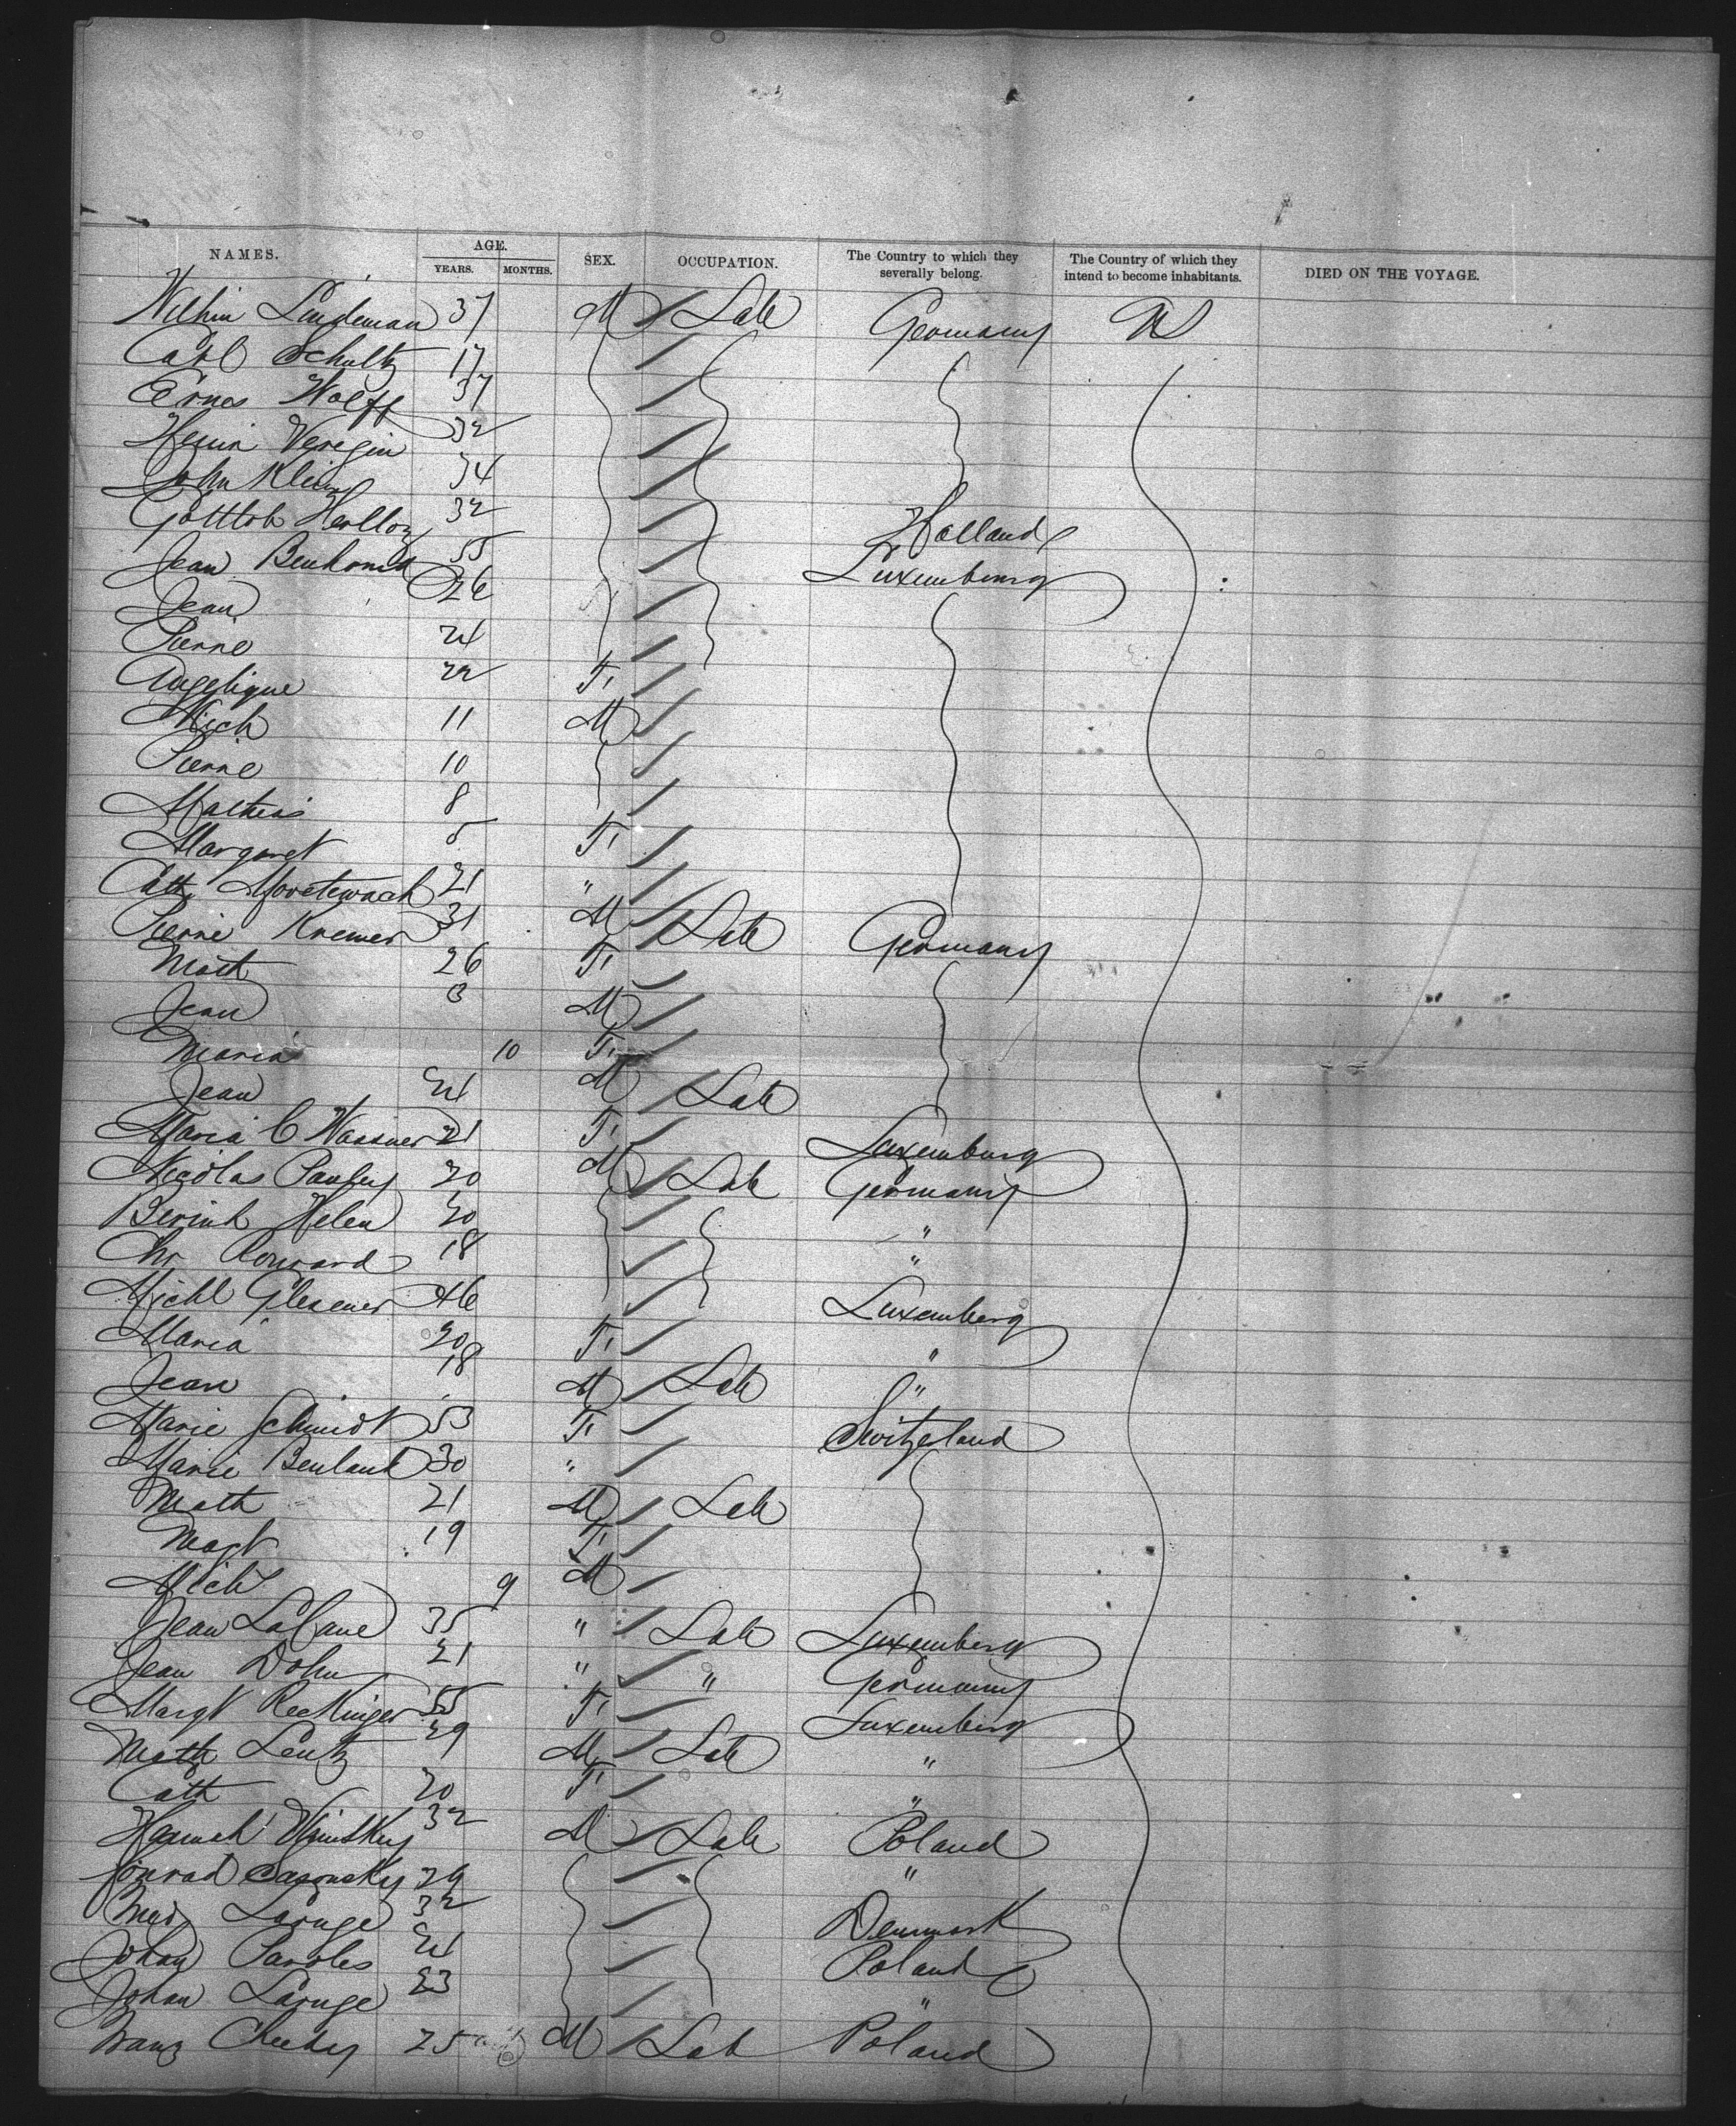 NAMES. AGE. SEX. OCCUPATION. The Country to which they severally belong. The Country of which they intend to become inhabitants. DIED ON THE VOYAGE.
YEARS. MONTHS.
Wilhm Lindeman 37 M Lab Germany US
Carl Schultz 17
Ernes Wolff 37
Henri 32
John Klein 34
Gottlob 32 Holland
Jean 55 Luxembourg
Jean 26
Pierre 24
Angelique 22 F
Mich 11 M
Pierre 10
Mathias 8
Margaret 5 F
Cath 21 "
Pierre Kremer 31 M Lab Germany
Math 26 F
Jean 3 M
Maria 10 F
Jean 24 M Lab
Maria C Wassner 21 F Luxemburg
Nicolas Pauley 20 M Lab Germany
Helen 20 "
Chr 18 "
Michl Glesener 46 Luxemberg
Maria 20 F "
Jean 18 M Lab "
Marie Schmidt 53 F Switzeland
Marie 30 "
Math 21 M Lab
Magt 19 F
Mich 9 M
Jean 35 " Lab Luxemberg
Jean Dohm 21 " " Germany
Margt Reckinger 55 F Luxemberg
Math Lentz 29 M Lab "
Cath 20 F "
32 M Lab Poland
Konrad 29 "
Laruge 32 Denmark
Johan Paroles 24 Poland
Johan Laruge 23 "
Franz 25 M Lab Poland